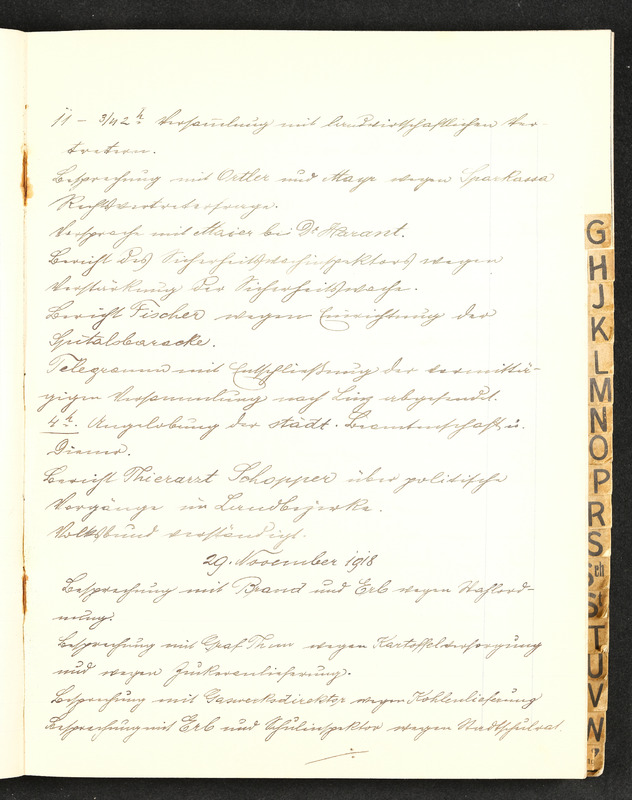 11 - 3/4 2 h Versammlung mit landwirtschaftlichen Ver-
tretern.
Besprechung mit Ortler und Mayr wegen Sparkassa
Rechtsvertreterfrage.
Versprache mit Maier bei Dr Harant.
Bericht des Sicherheitswachinspektors wegen
Verstärkung der Sicherheitswache.
Bericht Fischer wegen Einrichtung der
Spitalsbaracke.
Telegramm mit Entschließung der vormittä-
gigen Versammlung nach Linz abgesendet.
4 h. Angelobung der städt. Beamtenschaft u.
Diener.
Bericht Thierarzt Schopper über politische
Vorgänge im Landbezirke.
Volksbund verständigt.
29. November 1918
Besprechung mit Brand und Erb wegen Wahlord-
nung.
Besprechung mit Graf Thun wegen Kartoffelversorgung
und wegen Zuckeranlieferung.
Besprechung mit Gaswerksdirektor wegen Kohlenlieferung
Besprechung mit Erb und Schulinspektor wegen Stadtschulrat.
G
H
J
K
L
M
N
O
P
R
S
Sch
St
T
U
V
W